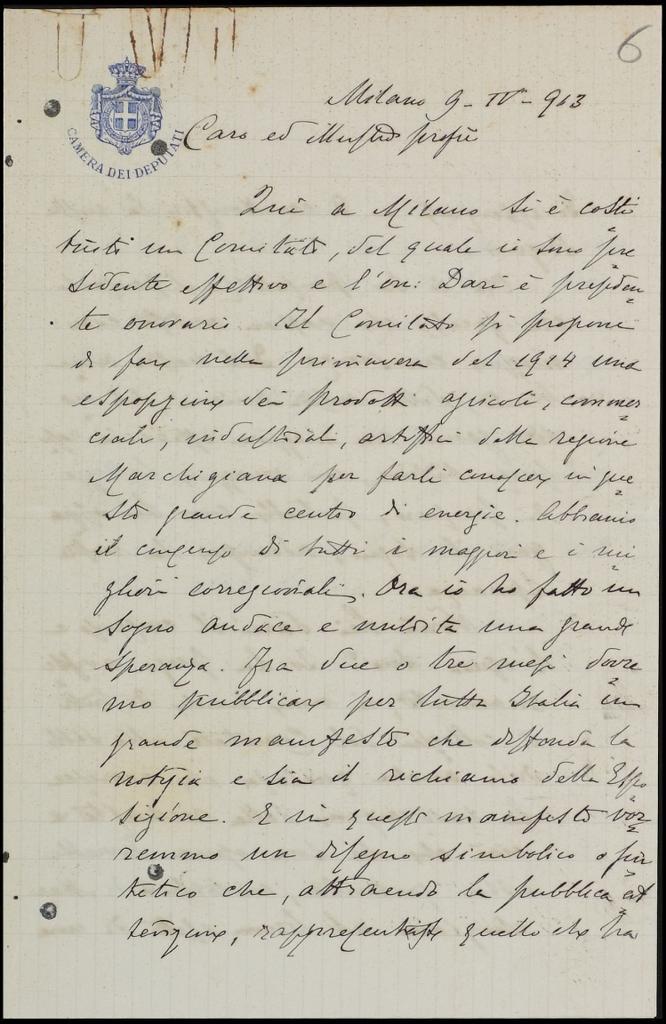 6
Milano 9-IV-913
CAMERA DEI DEPUTATI
Caro ed illustre profe
Qui a Milano si è costi
tuito un Comitato, del quale io sono pre
sidente effettivo e l'on: Dari è presiden
te onorario. Il Comitato si propone
di fare nella primavera del 1914 una
esposizione dei prodotti agricoli, commer
ciali, industriali, artistici della regione
Marchigiana per farli conoscere in que
sto grande centro di energie. Abbiamo
il consenso di tutti i maggiori e i mi
gliori corregionali. Ora io ho fatto un
sogno audace e nutrita una grande
speranza. Fra due o tre mesi dovre
mo pubblicare per tutta Italia un
grande manifesto che diffonda la
notizia e sia il richiamo della Espo
sizione. E in questo manifesto vor
remmo un disegno simbolico o sin
tetico che, attraendo la pubblica at
tenzione, rappresentasse quello che ha